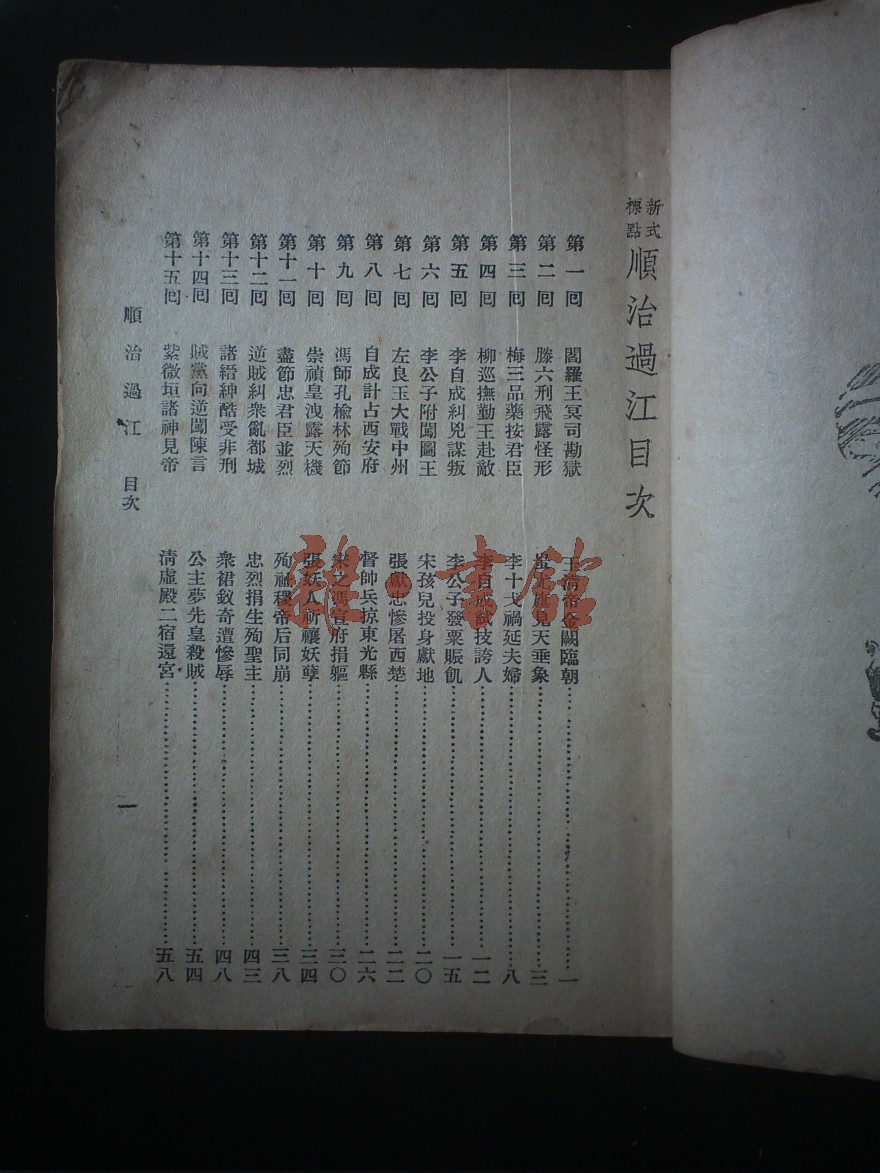 新式標點 順治過江目次
第一回 閻羅王冥司勘獄 玉清帝金闕臨朝 一
第二回 滕六刑飛露怪形 蚩尤旗見天垂象 三
第三回 梅三品藥按君臣 李十戈禍延夫婦 八
第四回 柳巡撫勤王赴敵 李自成試技誇人 一二
第五回 李自成糾兇謀叛 李公子發粟賑飢 一五
第六回 李公子附闖圖王 宋孩兒投身獻地 二〇
第七回 左良玉大戰中州 張獻忠慘屠西楚 二二
第八回 自成計占西安府 督帥兵掠東光縣 二六
第九回 馮師孔榆林殉節 宋之馮宣府捐軀 三〇
第十回 崇禎皇洩露天機 張妖人祈禳妖孽 三四
第十一回 盡節忠君臣並烈 殉社稷帝后同崩 三八
第十二回 逆賊糾衆亂都城 忠烈捐生殉聖主 四三
第十三回 諸縉紳酷受非刑 衆裙釵奇遭慘辱 四八
第十四回 賊黨向逆闖陳言 公主夢先皇殺賊 五四
第十五回 紫微垣諸神見帝 清虛殿二宿還宮 五八
順治過江 目次 一
雜·書館